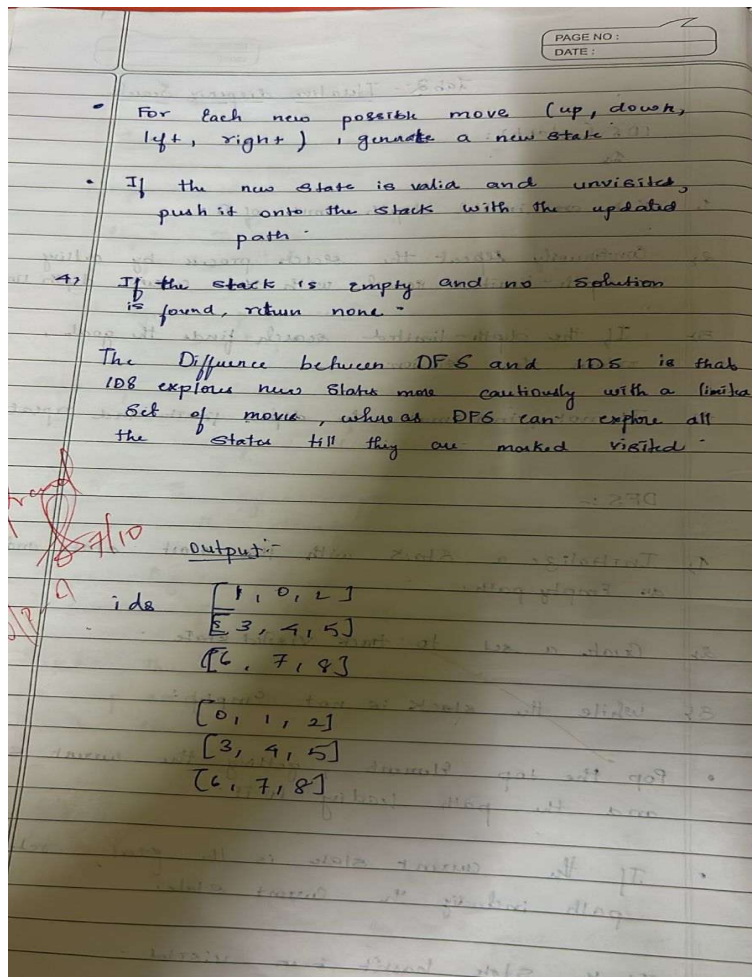 PAGE NO :
DATE :
• For each new possible move (up, down,
left, right), generate a new state
• If the new state is valid and unvisited,
push it onto the stack with the updated
path.
4) If the stack is empty and no solution
is found, return none.
The Diffuence between DFS and IDS is that
IDS explores new states more cautiously with a limited
Set of moves, whereas DFS can explore all
the states till they are marked visited.
7/10
Output:-
ids [1, 0, 2]
[3, 4, 5]
[6, 7, 8]
[0, 1, 2]
[3, 4, 5]
[6, 7, 8]